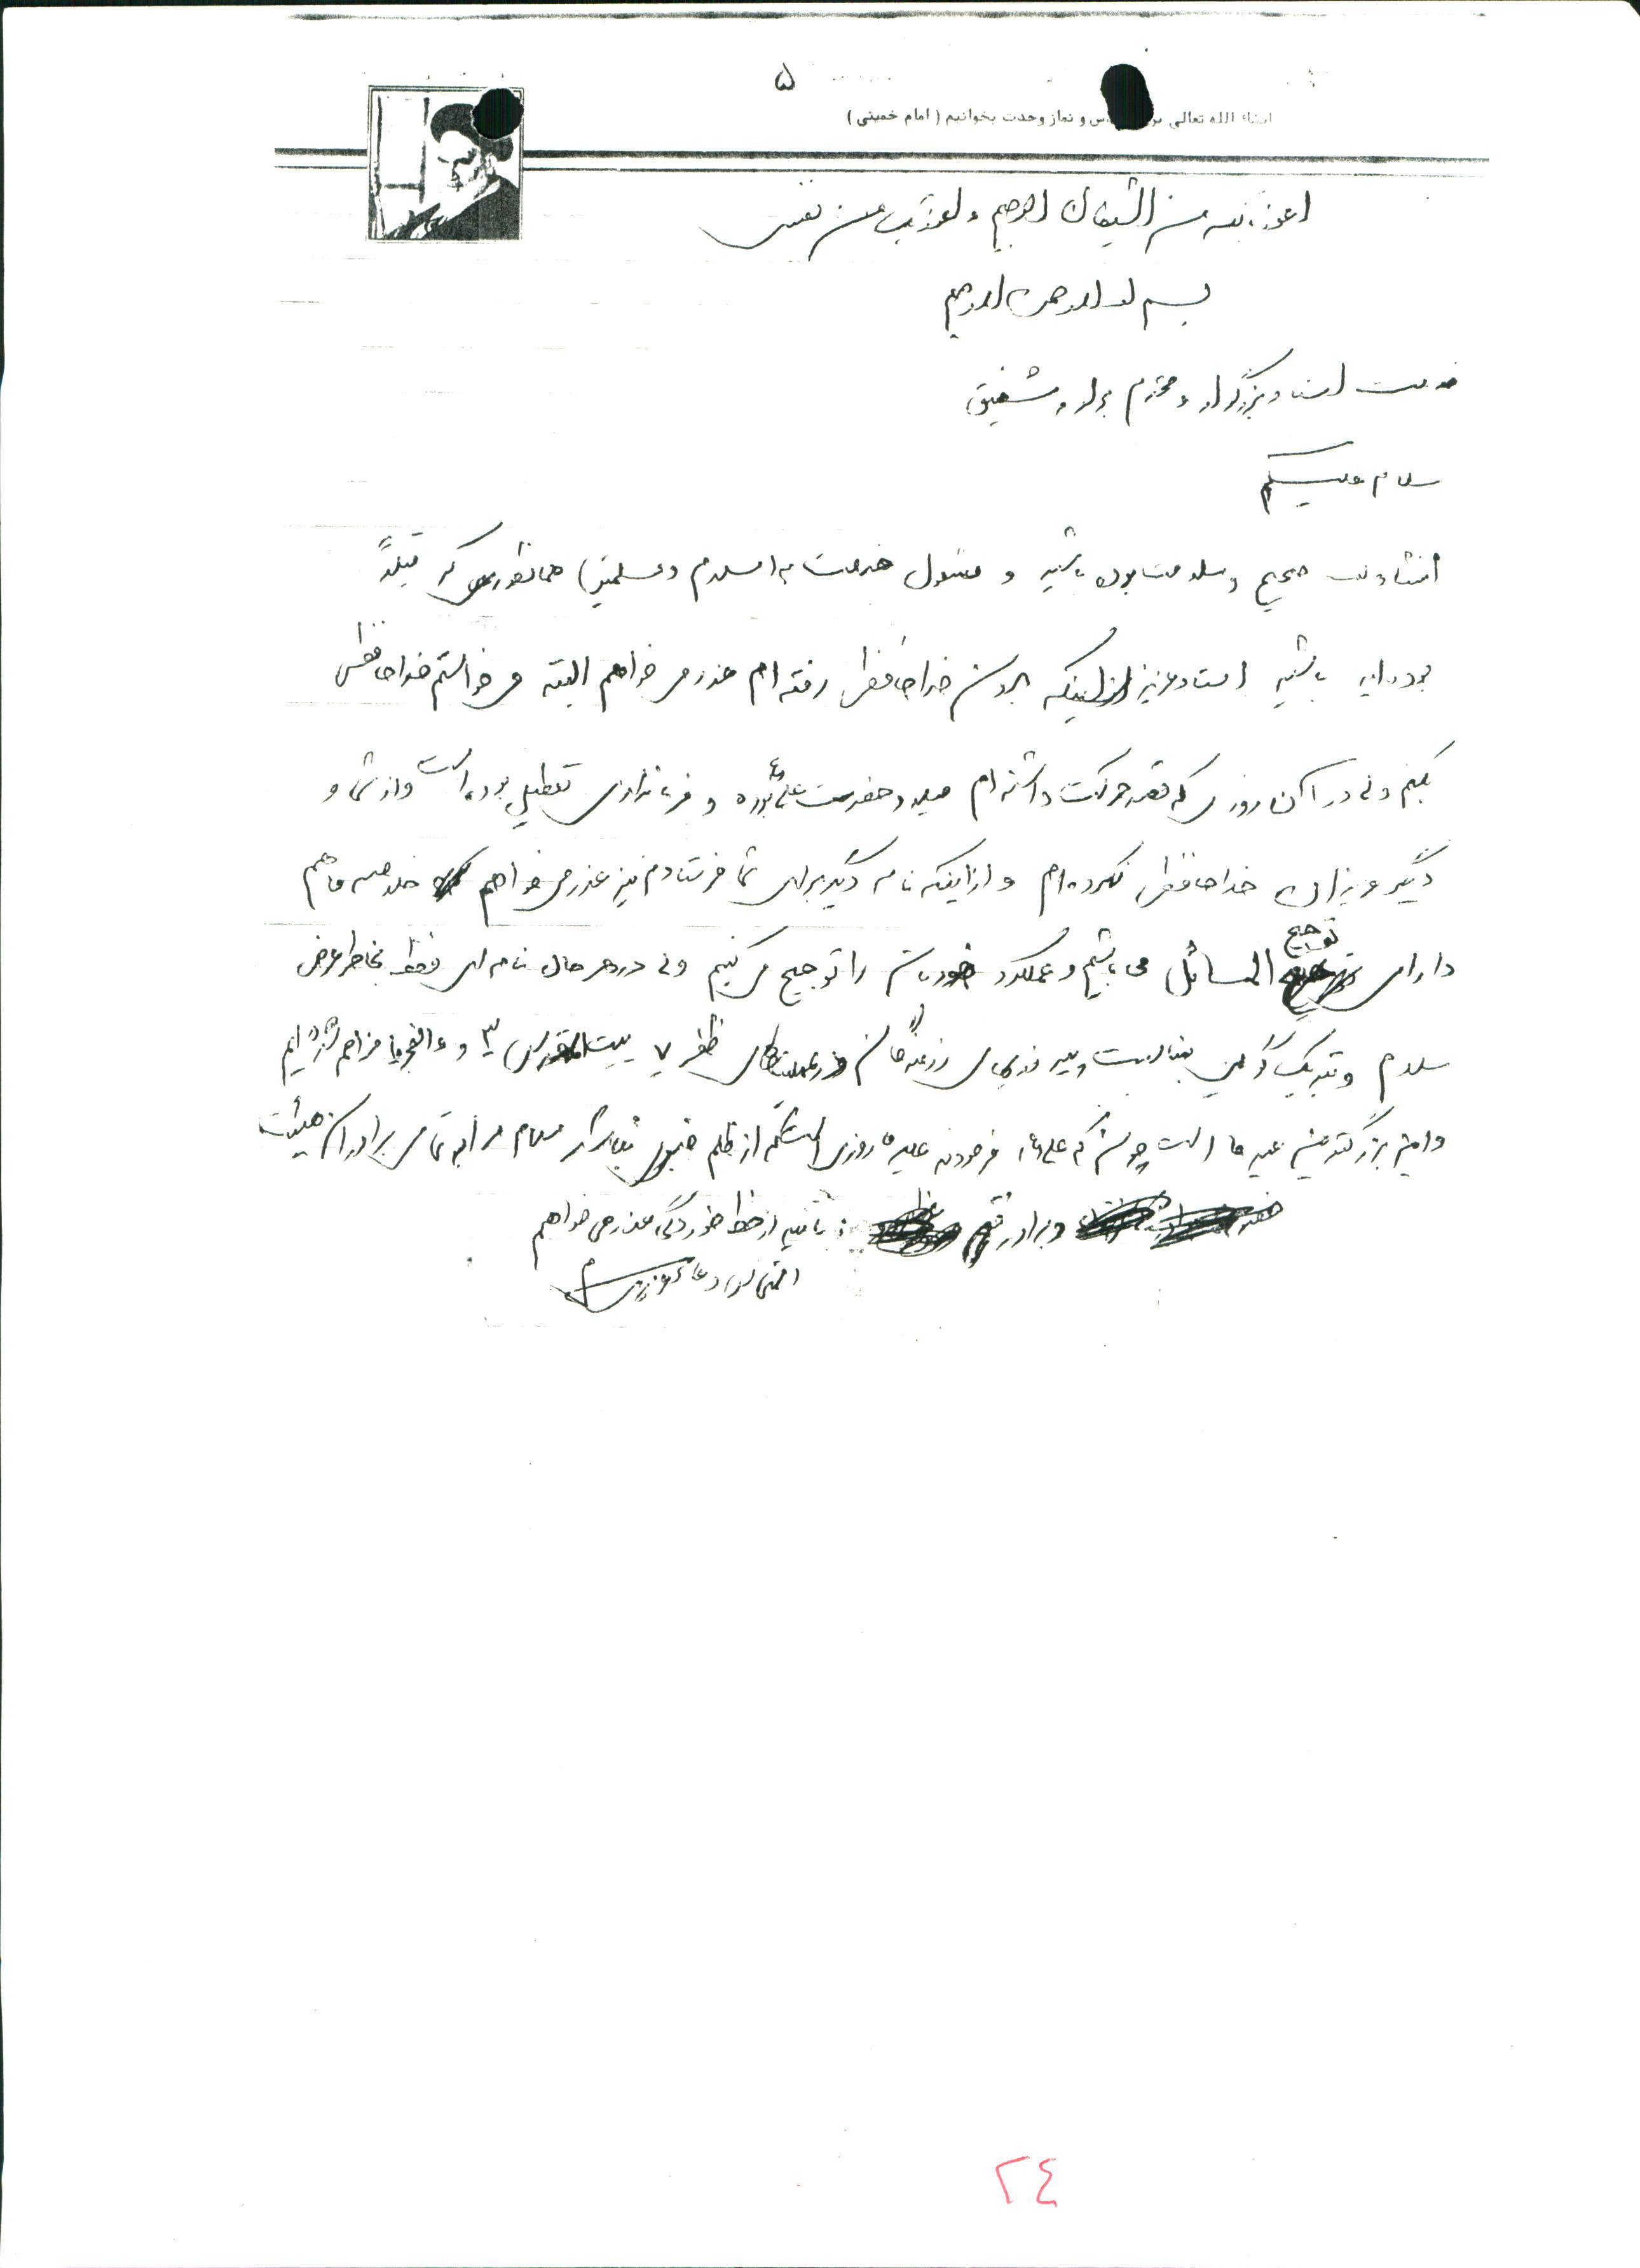 ۵
انشاء الله تعالی و نماز وحدت بخوانیم ( امام خمینی )
اعوذ بالله من الشیطان الرجیم و اعوذ بک من نفسی
بسم الله الرحمن الرحیم
خدمت استاد بزرگوار و محترم برادر شفیق
سلام علیکم
انشاءالله صحیح و سلامت بوده باشید و مشغول خدمت به اسلام و مسلمین همانطوری که قبلاً
بوده‌اید باشید استاد عزیز از اینکه بدون خداحافظی رفته ام عذر می خواهم البته می خواستم خداحافظی
بکنم ولی در آن روزی که قصد حرکت داشته ام میلاد حضرت علی ع بوده و فرمانداری تعطیل بوده است و از شما و
دیگر عزیزان خداحافظی نکرده ام و از اینکه نامه دیر برای شما فرستادم نیز عذر می خواهم خلاصه ما هم
دارای توجیح المسائل می باشیم و عملکرد خودمان را توجیح می کنیم ولی در هر حال نامه ای فقط بخاطر عرض
سلام و تبریک گفتن بمناسبت پیروزیهای رزمندگان در عملیاتهای ظفر ۷ بیت المقدس ۳ و والفجر مزاحم شده ایم
و این بزرگترین عید ما است چونکه علی (ع) فرمودند عید ما روزی است که از ظلم نباشد سلام مرا به تمامی برادران هیئت
و برادر از خط خوردگی عذر می خواهم
التماس دعا
۲۴